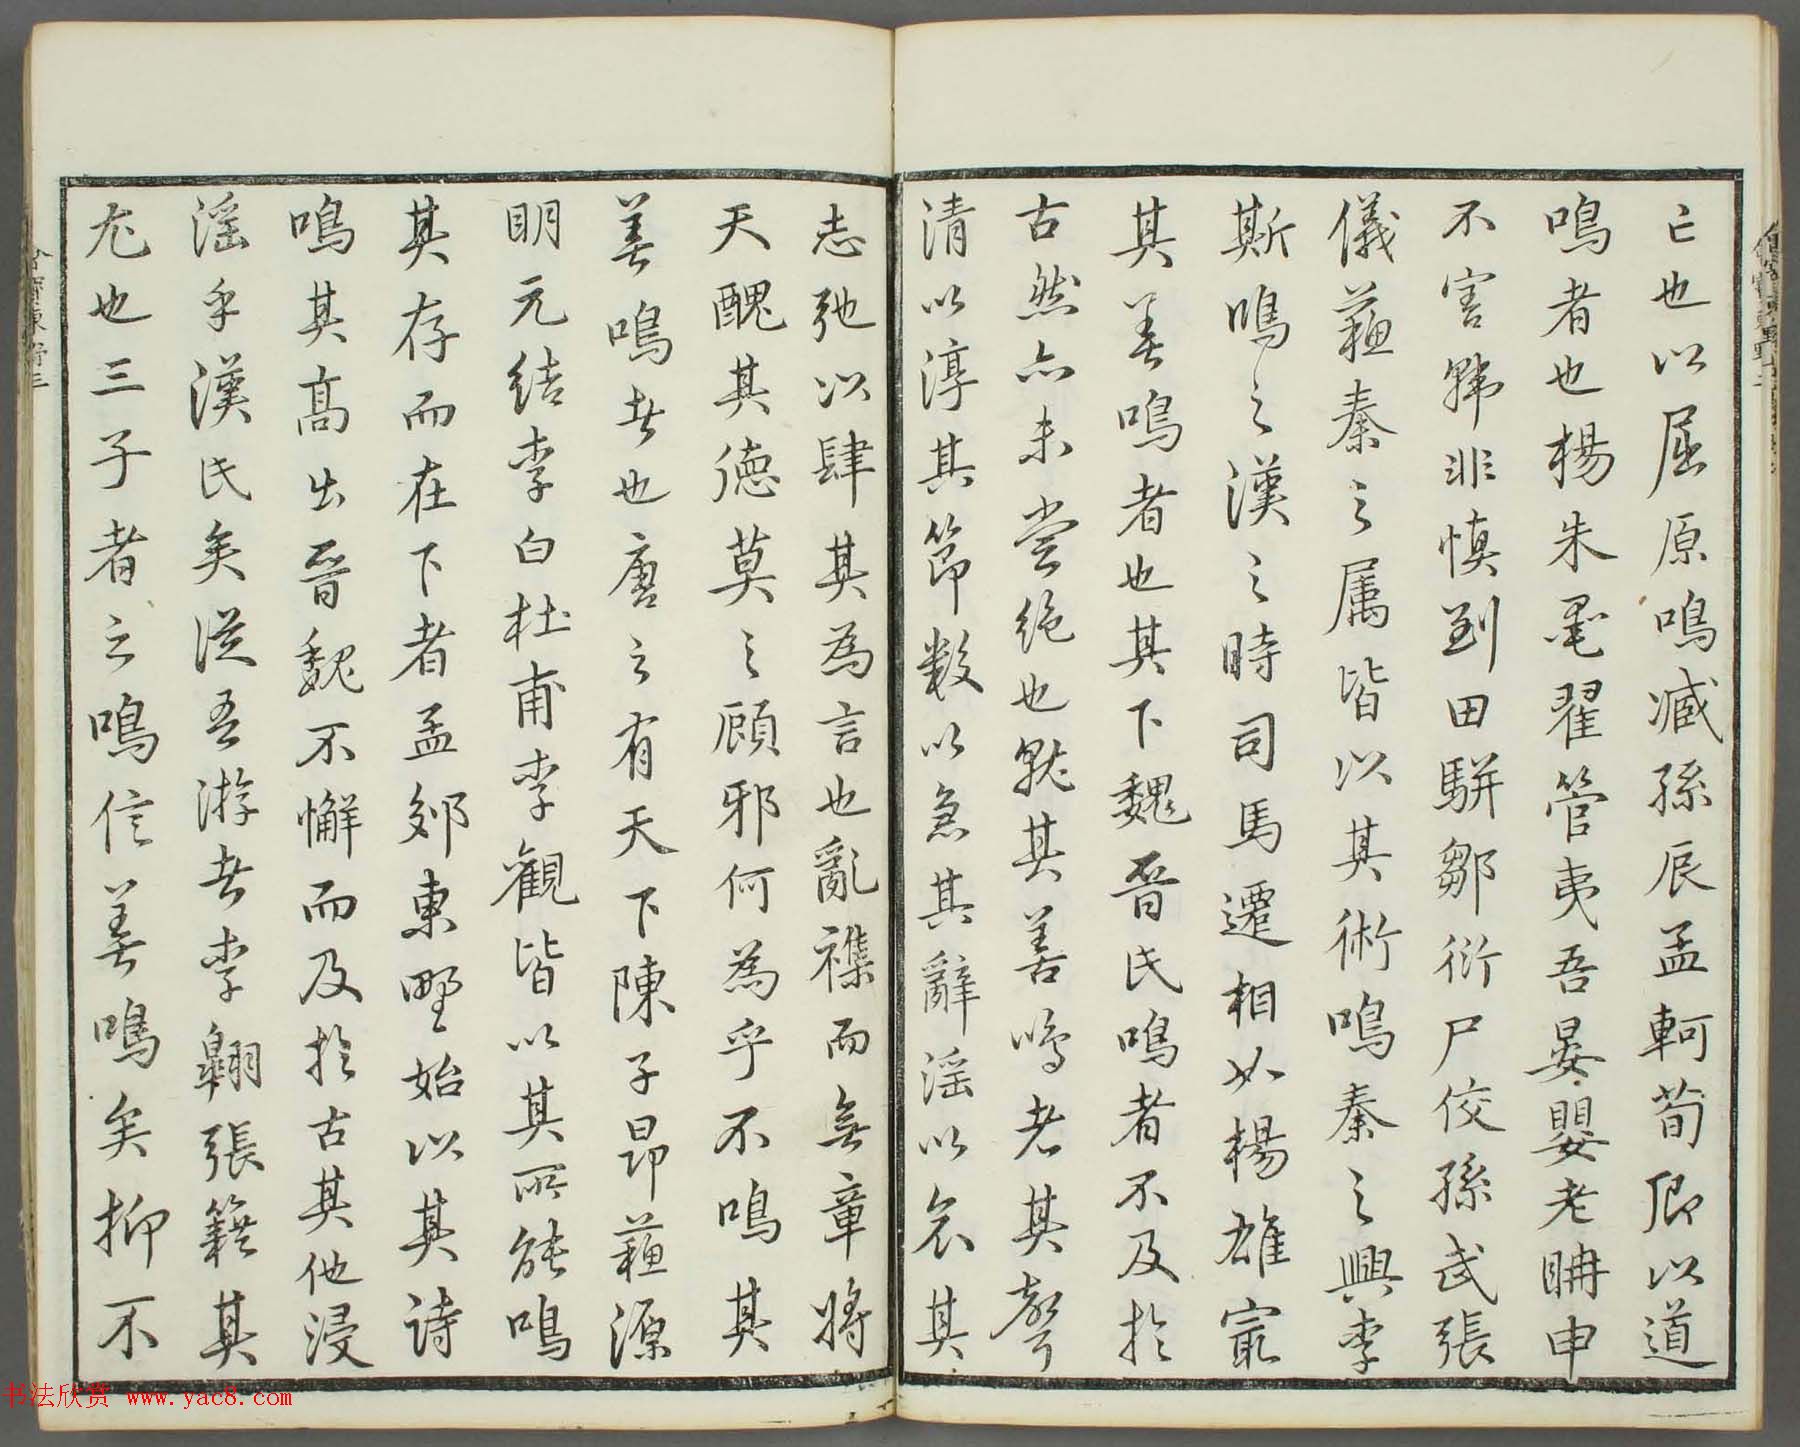 亡也以屈原鳴臧孫辰孟軻荀卿以道
鳴者也楊朱墨翟管夷吾晏嬰老耼申
不害韓非慎到田駢鄒衍尸佼孫武張
儀蘇秦之屬皆以其術鳴秦之興李
斯鳴之漢之時司馬遷相如楊雄㝡
其善鳴者也其下魏晉氏鳴者不及於
古然亦未嘗絶也就其善鳴者其聲
清以淳其節數以急其辭淫以哀其
志弛以肆其為言也亂襍而無章將
天醜其德莫之顧邪何為乎不鳴其
善鳴者也唐之有天下陳子昂蘇源
明元結李白杜甫李觀皆以其所能鳴
其存而在下者孟郊東野始以其詩
鳴其高出晉魏不懈而及於古其他浸
淫乎漢氏矣從吾游者李翺張籍其
尤也三子者之鳴信善鳴矣抑不
书法欣赏 www.yac8.com